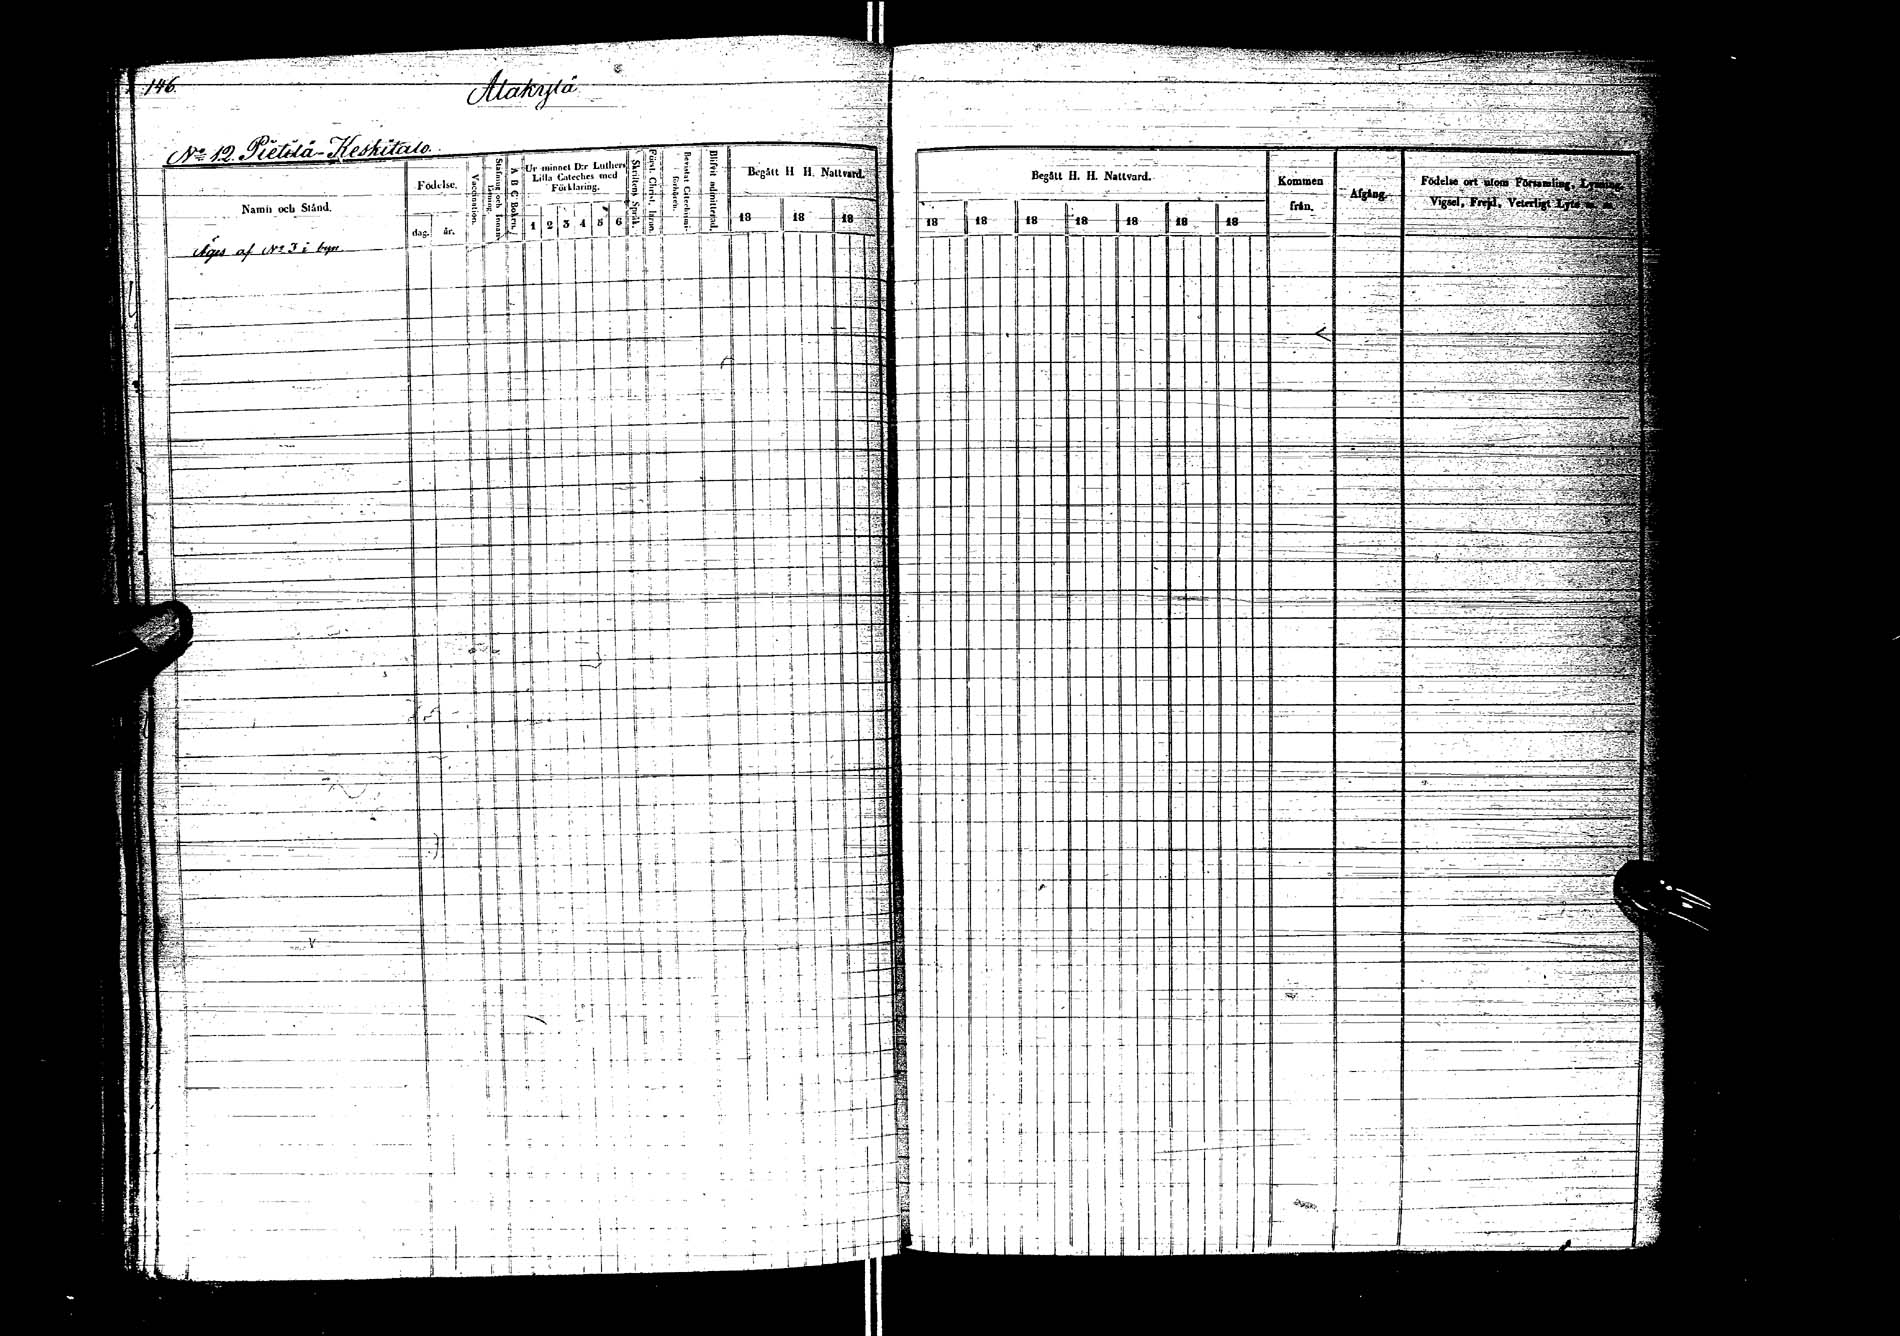 146.
Alakylä
No 12. Pietilä-Keskitalo.
Namn och Stånd.
Födelse.
dag.
år.
Vaccination.
Stafning och Innan-
läsning.
A B C Boken.
Ur minnet D:r Luthers
Lilla Cateches med
Förklaring.
1 2 3 4 5 6
Skriftens Språk.
Först. Christ. Inran.
Bevistat Catechismi-
förhören.
Blifvit admitterad.
Begått H. H. Nattvard.
18 18 18
Äges af No 3 i byn
Begått H. H. Nattvard.
18 18 18 18 18 18 18
Kommen
från.
Afgång.
Födelse ort utom Församling, Lysning,
Vigsel, Frejd, Veterligt Lyte m. m.